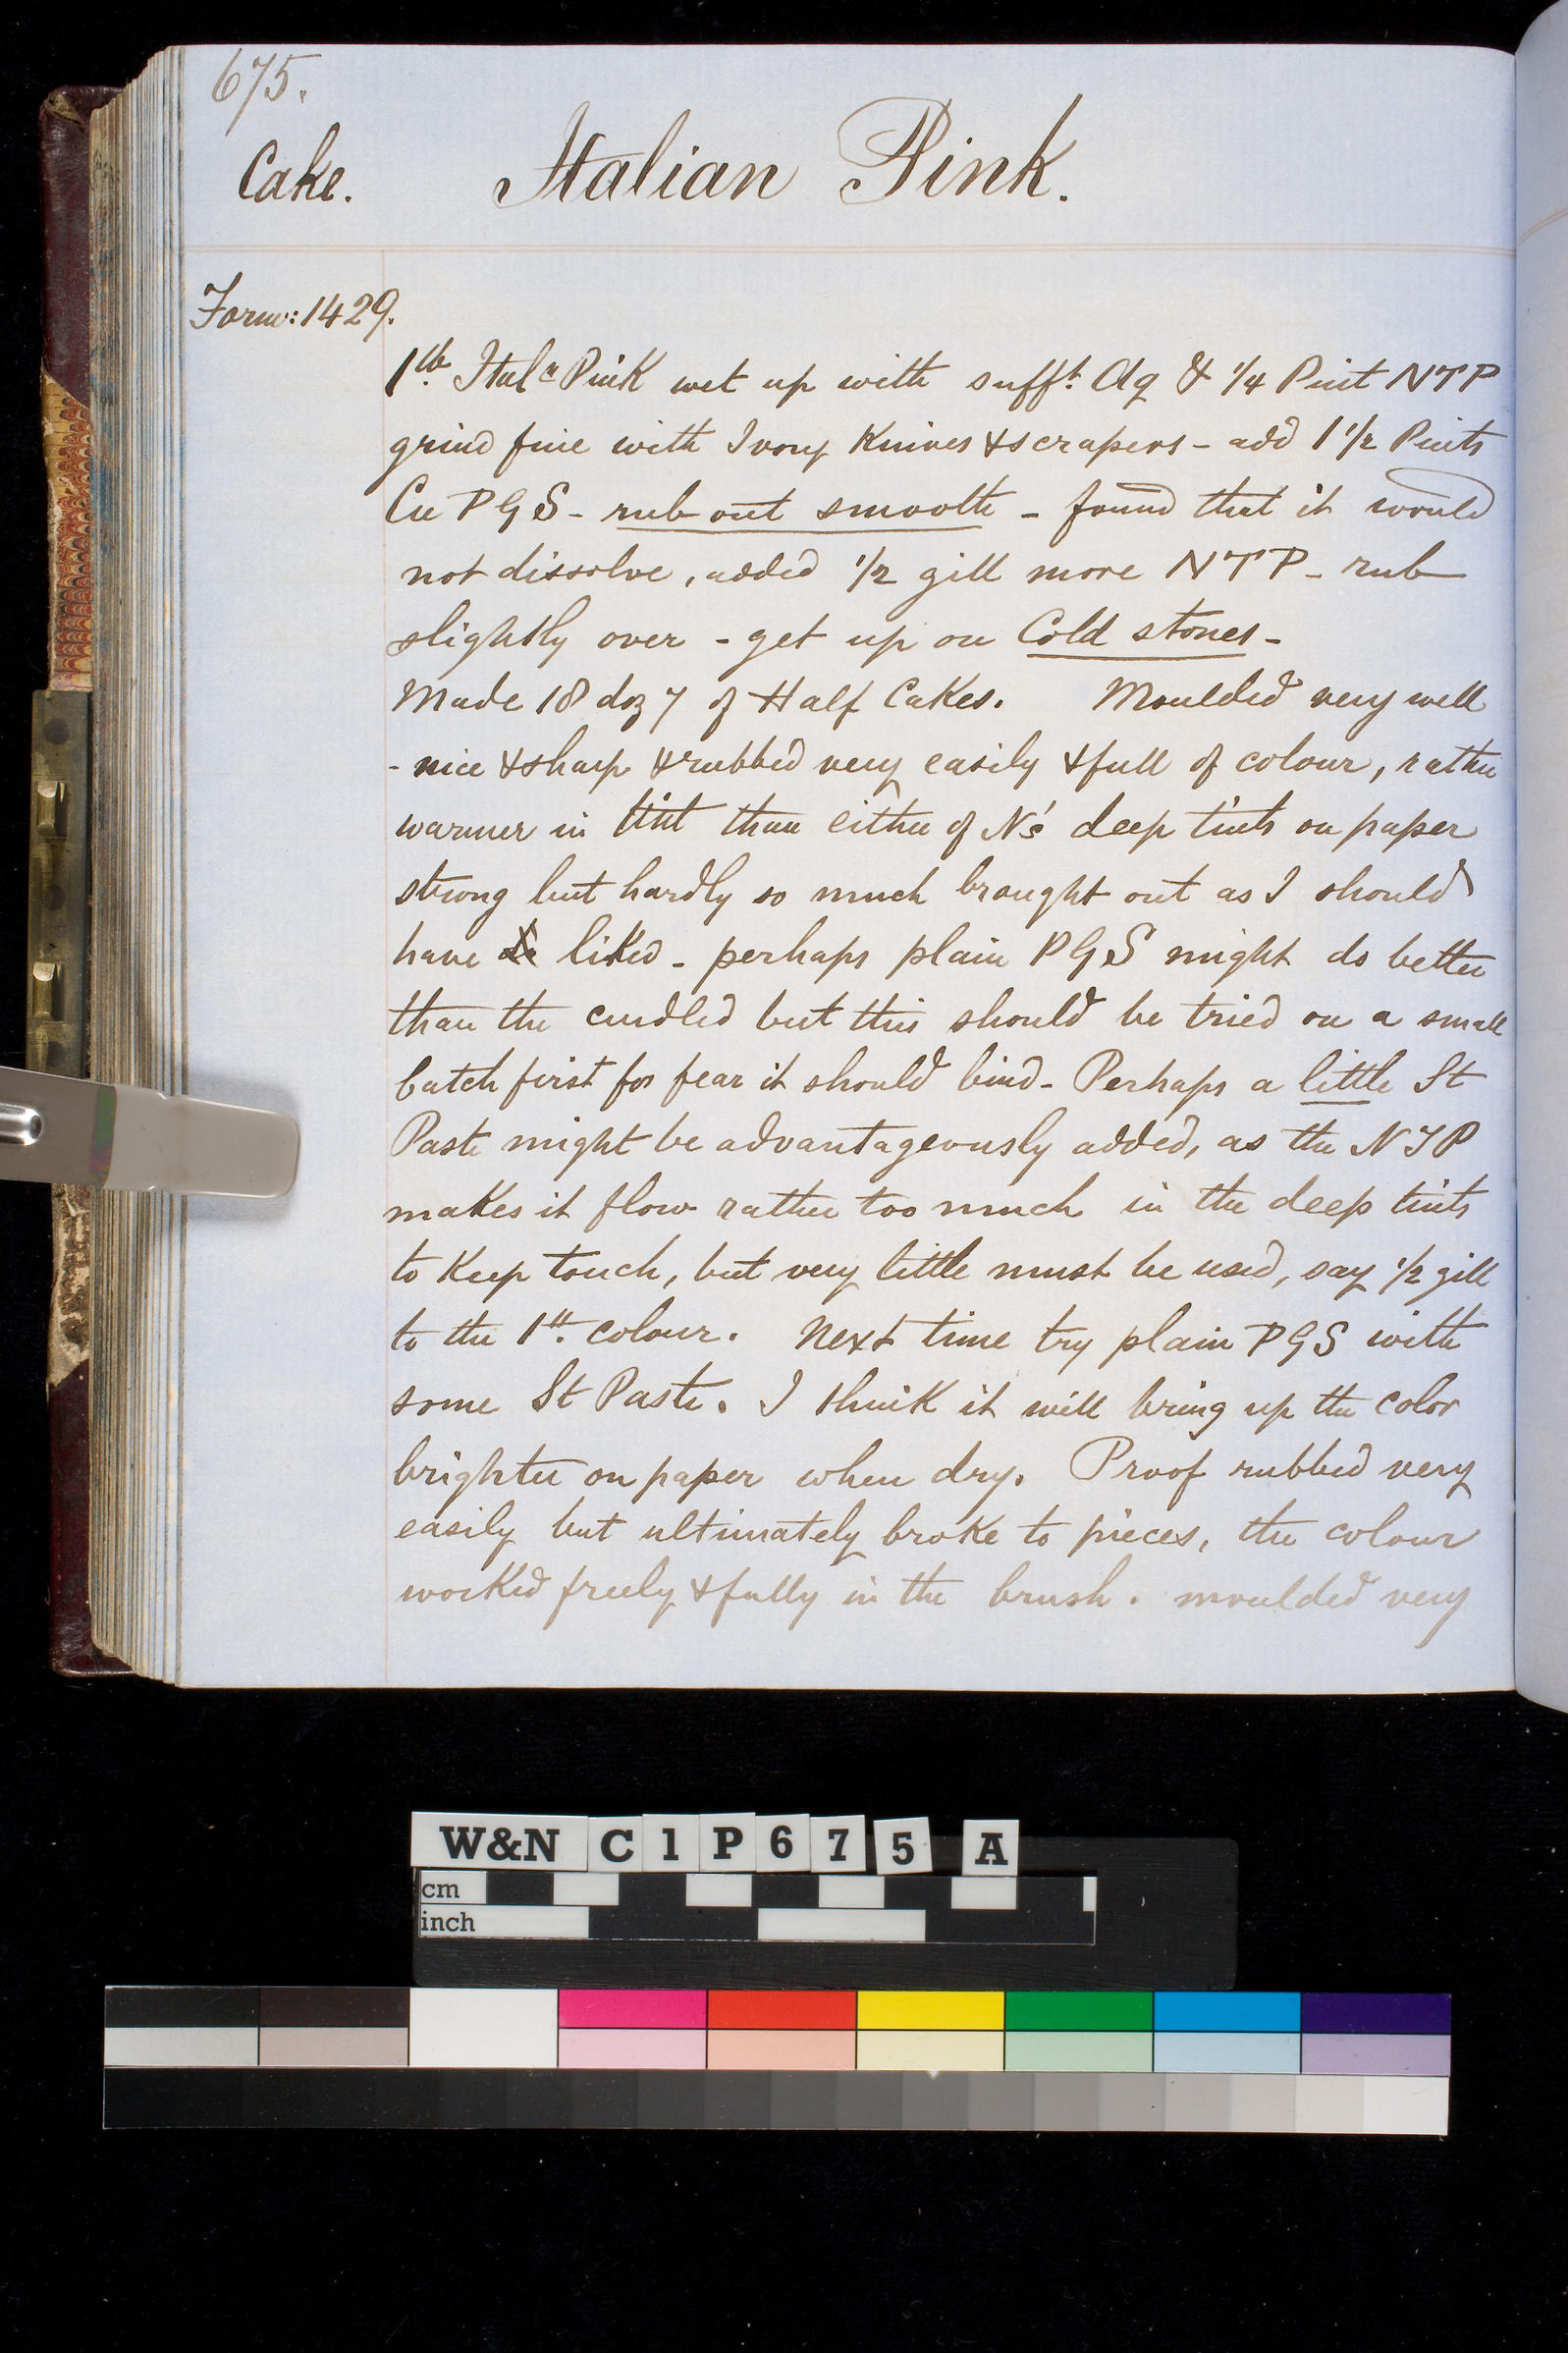 675.
Cake. Italian Pink.
Form: 1429.
1lb. Italn Pink wet up with sufft. Aq & 1/4 Pint NTP
grind fine with Ivory Knives & scrapers - add 1 1/2 Pints
Cu PGS - rub out smooth - found that it would
not dissolve, added 1/2 gill more NTP - rub
slightly over - get up on Cold stones -
Made 18 doz 7 of Half Cakes. Moulded very well
- nice & sharp & rubbed very easily & full of colour, rather
warmer in tint than either of N's deep tints on paper
strong but hardly so much brought out as I should
have liked - perhaps plain PGS might do better
than the curdled but this should be tried on a small
batch first for fear it should bind - Perhaps a little St
Paste might be advantageously added, as the NTP
makes it flow rather too much in the deep tints
to Keep touch, but very little must be used, say 1/2 gill
to the 1lb. colour. Next time try plain PGS with
some St Paste. I think it will bring up the color
brighter on paper when dry. Proof rubbed very
easily but ultimately broke to pieces, the colour
worked freely & fully in the brush. moulded very
W&N C1P675 A
cm
inch